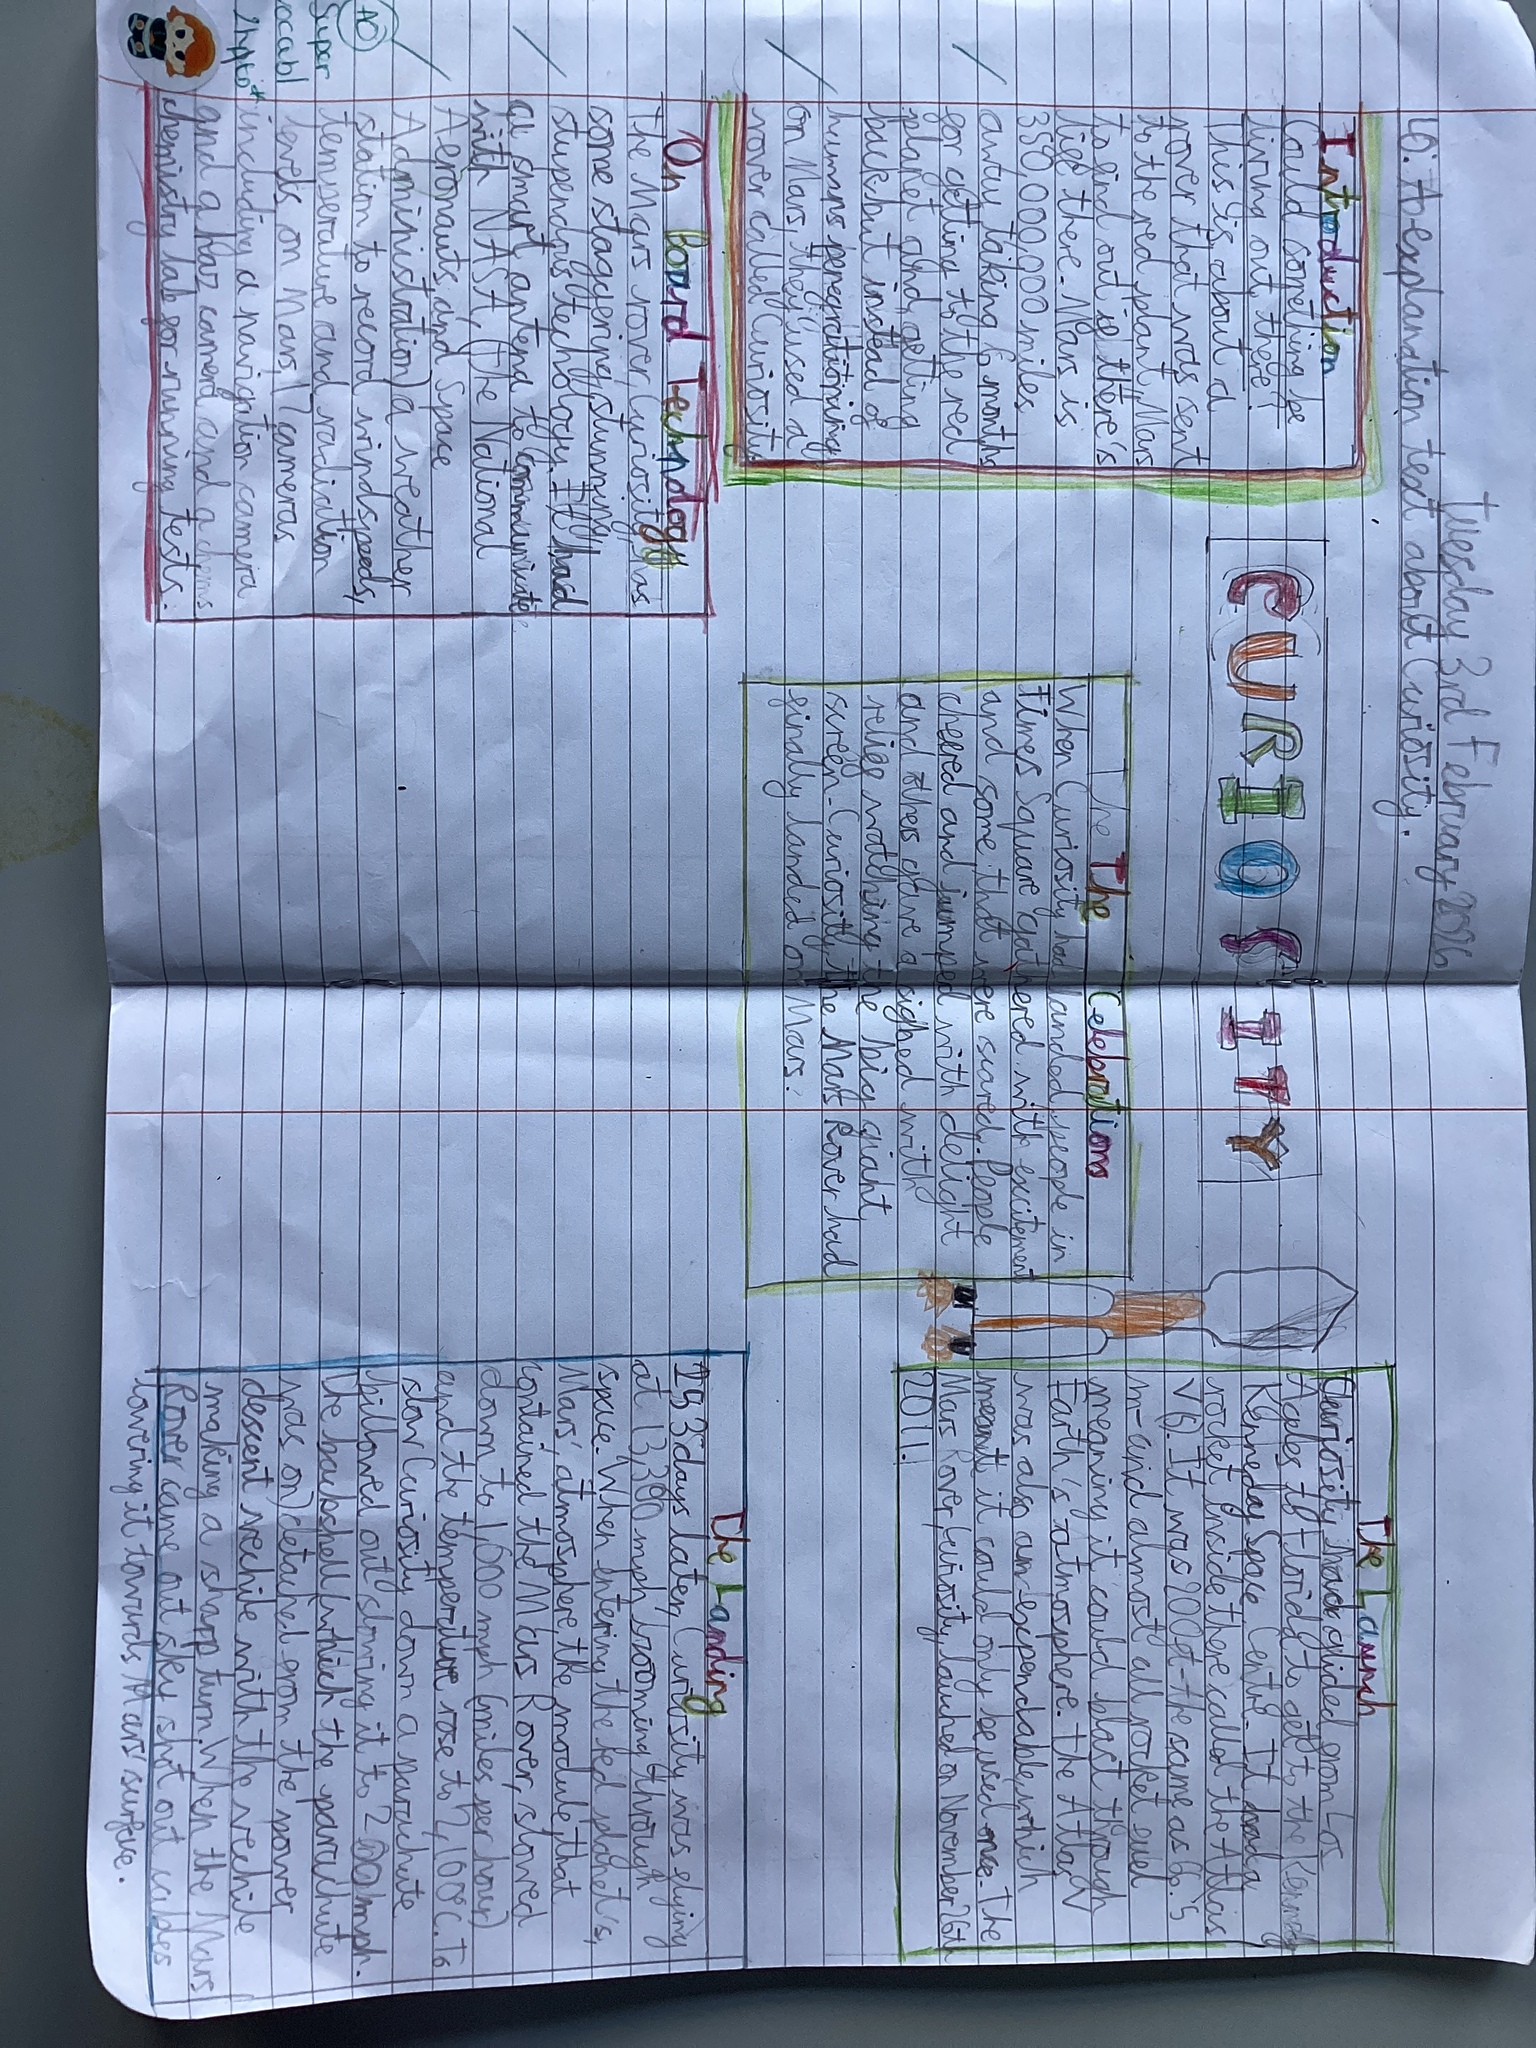 Tuesday 3rd February 2026
LO: An explanation text about Curiosity.
CURIOSITY
Introduction
Could something be
living out there?
This is about a
rover that was sent
to the red plant, Mars
to find out if there's
life there. Mars is
350,000,000 miles
away taking 6 months
for getting to the red
planet and getting
back but instead of
humans peregrinationing
on Mars, they used a
rover called Curiosity
On Board Technology
The Mars rover, Curiosity, has
some staggering, stunning,
stupendous technology. It had
a smart antena to communicate
with NASA, (The National
Aeronauts and Space
Administration) a weather
station to record windspeeds,
temperature and radiation
levels on Mars, 17 cameras
including a navigation camera
and a haz camera and a chems
chemistry lab for running tests.
AO
Super
vocab!
2hpto*
The Celebrations
The
When Curiosity had landed, people in
Times Square gathered with excitement
and some that were scared. People
cheered and jumped with delight
and others gave a sighed with
relief watching the big giant
screen. Curiosity, the Mars Rover had
finally landed on Mars.
The Launch
Curiosity had glided from Los
Ageles to Florida to get to the Kennedy
Kenneday Space Centre. It had a
rocket inside there called the Atlas
V(5). It was 200ft - the same as 66.5
m-and almost all rocket fuel
meaning it could blast through
Earth's atmosphere. The Atlas V
was also an-expendable, which
meant it could only be used once. The
Mars Rover, Curiosity, launched on November 26th
2011.
The Landing
253 days later, Curiosity was flying
at 13,380 mph, zooming through
space. When entering the red planet's,
Mars', atmosphere, the module that
contained the Mars Rover, slowed
down to 1,000 mph (miles per hour)
and the temperature rose to 2,100°C. To
slow Curiosity down a parachute
billowed out slowing it to 200 mph.
The backshell (which the parachute
was on) detached from the power
descent vechile with the vechile
making a sharp turn. When the Mars
Rover came out sky shot out cables
lowering it towards Mars' surface.